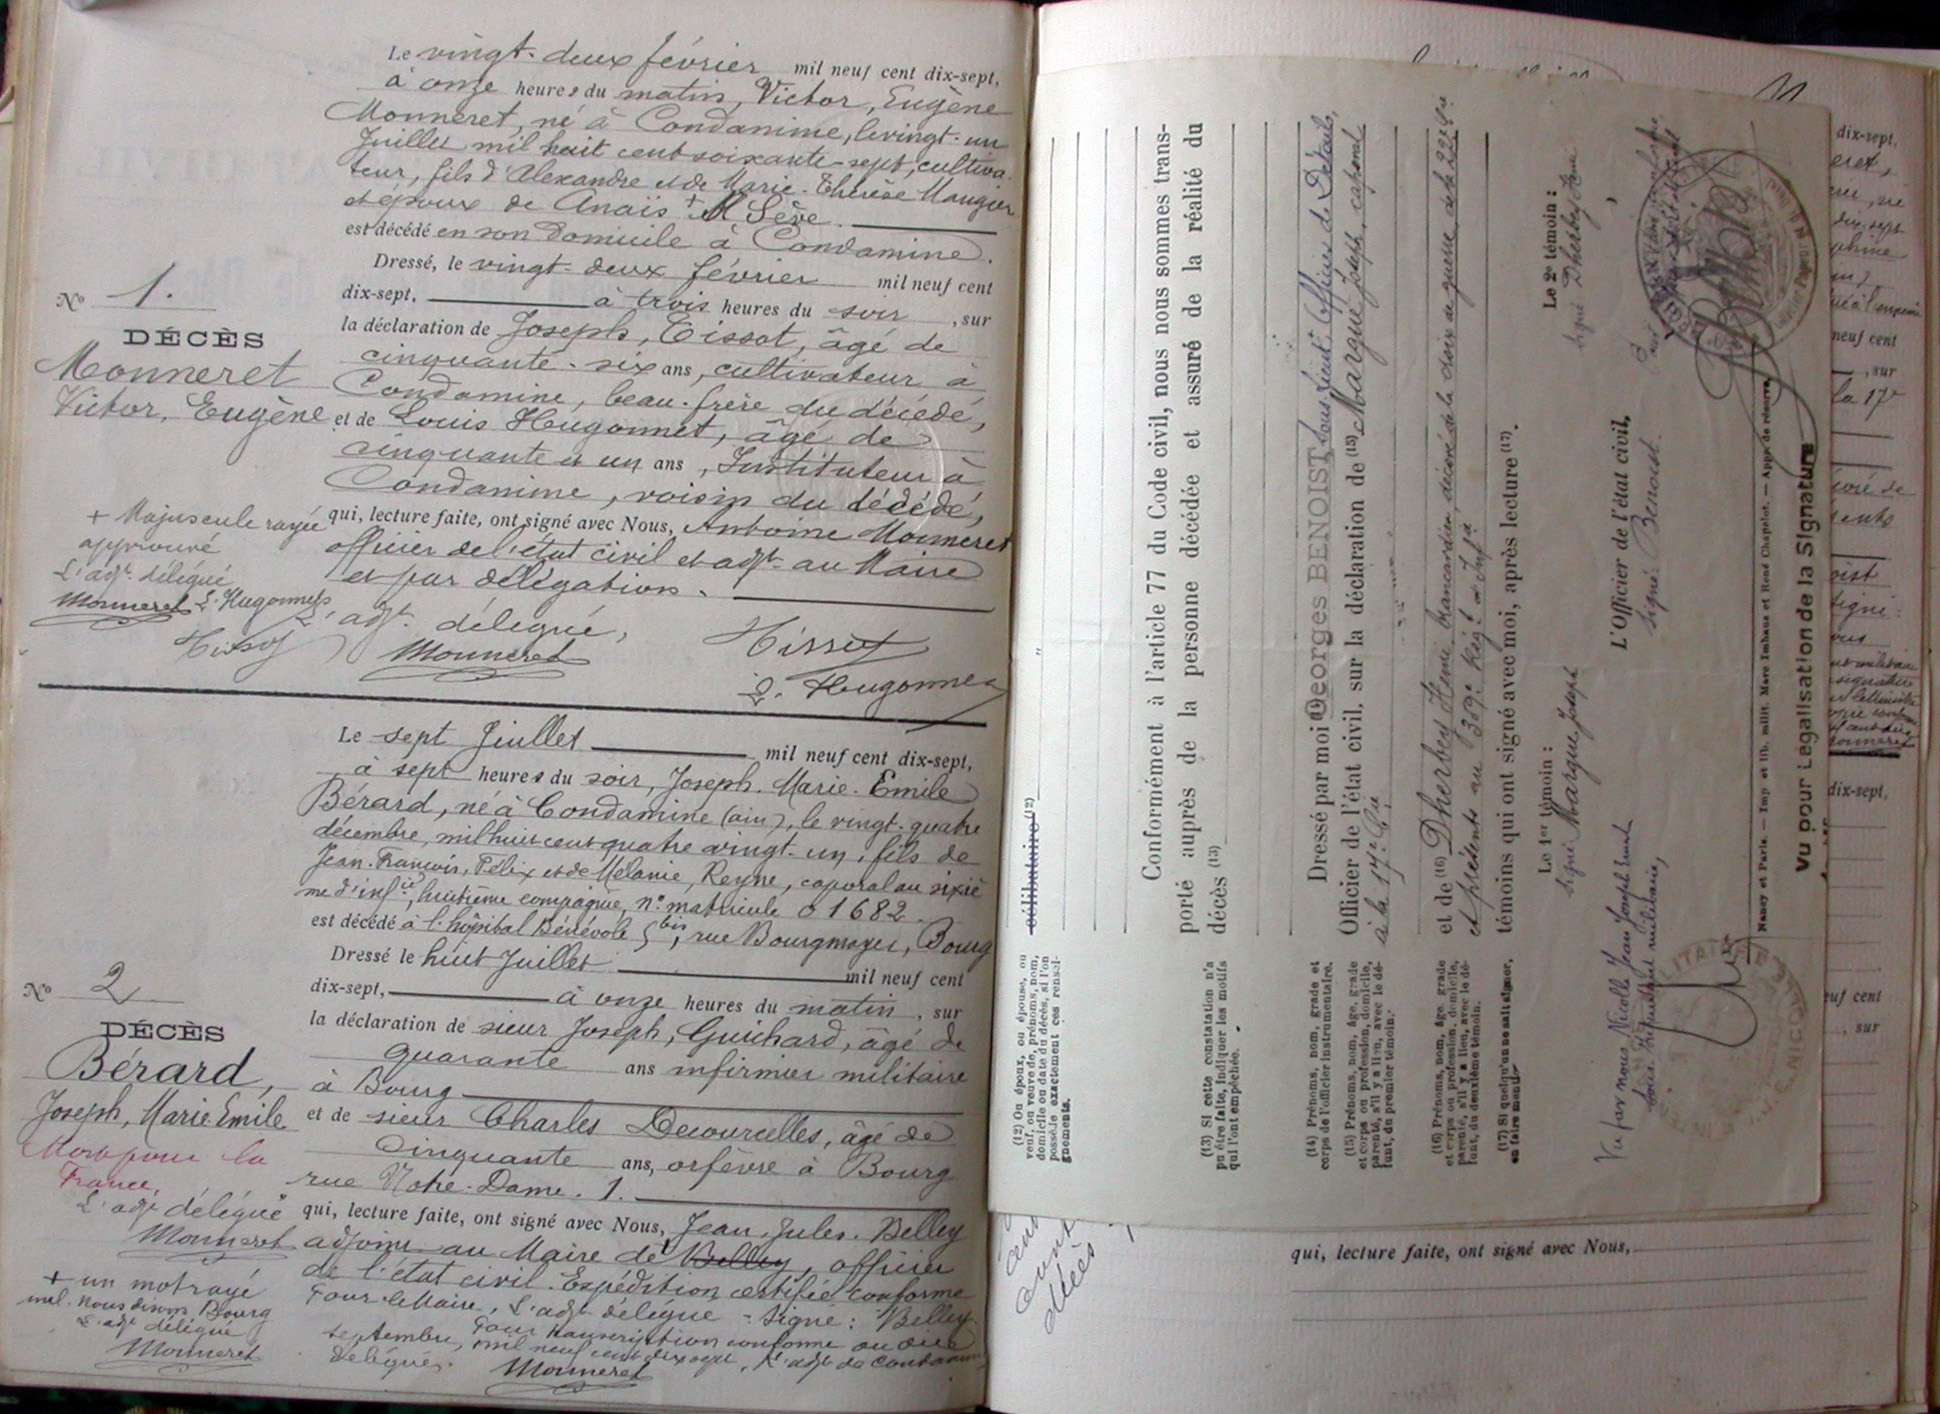 Le vingt-deux février mil neuf cent dix-sept,
à onze heures du matin, Victor, Eugène
Monneret, né à Condamine, le vingt-un
Juillet mil huit cent soixante-sept, cultiva-
teur, fils d'Alexandre et de Marie-Thérèse Maugier
et époux de Anaïs + M Sève
est décédé en son domicile à Condamine.
Dressé, le vingt-deux février mil neuf cent
dix-sept, à trois heures du soir, sur
la déclaration de Joseph, Tissot, âgé de
cinquante-six ans, cultivateur à
Condamine, beau-frère du décédé,
et de Louis Hugonnet, âgé de
cinquante et un ans, Instituteur à
Condamine, voisin du décédé,
qui, lecture faite, ont signé avec Nous, Antoine Monneret
officier de l'état civil et adjt au Maire
et par délégation.
L'adjt délégué,
Monneret
Tissot
L. Hugonnet
No 1.
DÉCÈS
Monneret
Victor, Eugène
+ Majuscule rayée
approuvé
L'adjt délégué
Monneret L. Hugonnet
Tissot
Le sept Juillet mil neuf cent dix-sept,
à sept heures du soir, Joseph-Marie-Emile
Bérard, né à Condamine (ain), le vingt-quatre
décembre, mil huit cent quatre vingt-un, fils de
Jean-François, Félix et de Mélanie, Reyne, caporal au sixiè
me d'infie, huitième compagnie, no matricule 01682.
est décédé à l'hôpital Bénévole 5bis, rue Bourgmayer, Bourg
Dressé le huit Juillet mil neuf cent
dix-sept, à onze heures du matin, sur
la déclaration de sieur Joseph, Guichard, âgé de
quarante ans infirmier militaire
à Bourg
et de sieur Charles Decourcelles, âgé de
Cinquante ans, orfèvre à Bourg
rue Notre-Dame. 1.
qui, lecture faite, ont signé avec Nous, Jean-Jules-Belley
adjoint au Maire de Belley, officier
de l'état civil. Expédition certifiée conforme
Pour le Maire, L'adjt délégué - Signé: Belley.
Pour transcription conforme au dix
septembre, mil neuf cent dix sept, L'adjt de Condamine
délégué.
Monneret
No 2
DÉCÈS
Bérard,
Joseph, Marie Emile
Mort pour la
France,
L'adjt délégué
Monneret
+ un mot rayé
nul. Nous disons Bourg
L'adjt délégué
Monneret
célibataire (12)
Conformément à l'article 77 du Code civil, nous nous sommes trans-
porté auprès de la personne décédée et assuré de la réalité du
décès (13)
Dressé par moi (14) Georges BENOIST Sous-lieut Officier de Détails,
Officier de l'état civil, sur la déclaration de (15) Margue Joseph, caporal
à la 17e Cie
et de (16) Dherbey Henri, brancardier, décoré de la croix de guerre, de la 22e Cie
et présents au 309e Régt d'Infie
témoins qui ont signé avec moi, après lecture (17).
Le 1er témoin :
Signé Margue Joseph
Le 2e témoin :
Signé Dherbey Henri
L'Officier de l'état civil,
Signé: Benoist.
Vu par nous Nicolle Jean Joseph
sous intendant militaire,
Nancy et Paris. — Imp et lib. milit. Marc Imhaus et René Chapelot. — Appr. de réserve.
Vu pour Légalisation de la Signature
(12) Ou époux, ou épouse, ou
veuf, ou veuve de, prénoms, nom,
domicile ou date du décès, si l'on
possède exactement ces rensei-
gnements.
(13) Si cette constatation n'a
pu être faite, indiquer les motifs
qui l'ont empêchée.
(14) Prénoms, nom, grade et
corps de l'officier instrumentaire.
(15) Prénoms, nom, âge, grade
et corps ou profession, domicile,
parenté, s'il y a lieu, avec le dé-
funt, du premier témoin.
(16) Prénoms, nom, âge, grade
et corps ou profession, domicile,
parenté, s'il y a lieu, avec le dé-
funt, du deuxième témoin.
(17) Si quelqu'un ne sait signer,
en faire mention.
décès
qui, lecture faite, ont signé avec Nous,
dix-sept,
neuf cent
, sur
la 17e
dix-sept,
neuf cent
, sur